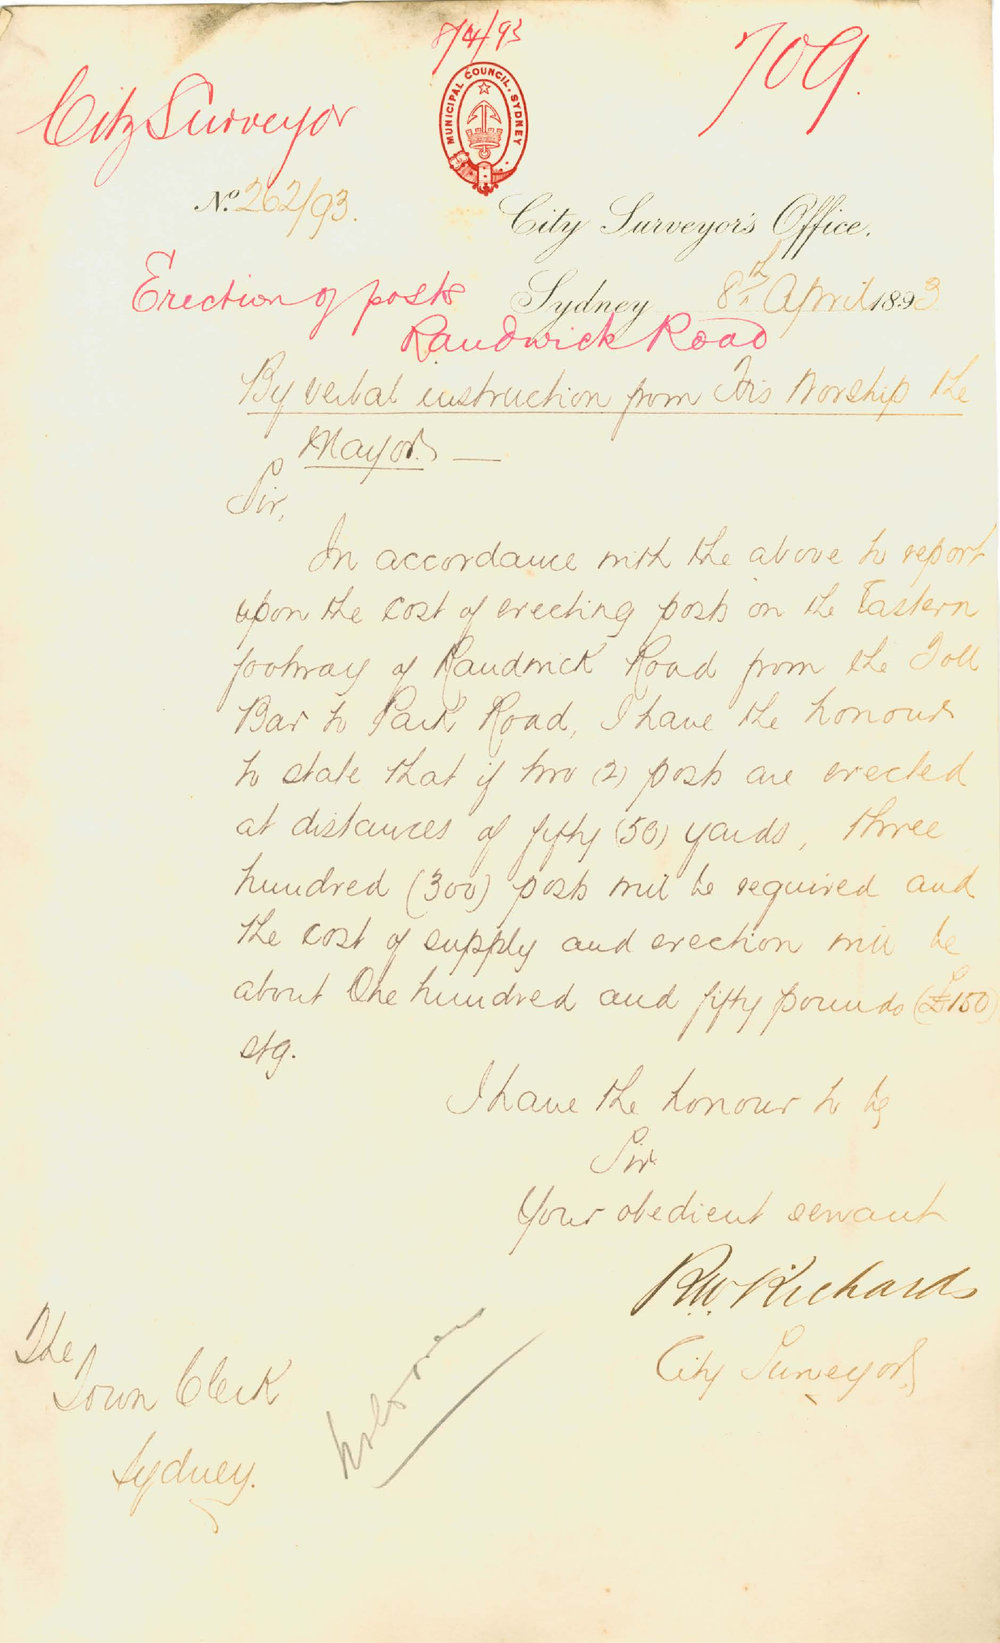 8/4/93
709.
City Surveyor
MUNICIPAL COUNCIL. SYDNEY
No. 262/93.
City Surveyor's Office,
Erection of posts
Sydney 8th April 1893
Randwick Road
By verbal instruction from His Worship the
Mayor. —
Sir,
In accordance with the above to report
upon the cost of erecting posts on the Eastern
footway of Randwick Road from the Toll
Bar to Park Road, I have the honour
to state that if two (2) posts are erected
at distances of fifty (50) yards, three
hundred (300) posts will be required and
the cost of supply and erection will be
about One hundred and fifty pounds (£150)
stg.
I have the honour to be
Sir
Your obedient servant
R.W. Richards
City Surveyor
The
Town Clerk
Sydney.